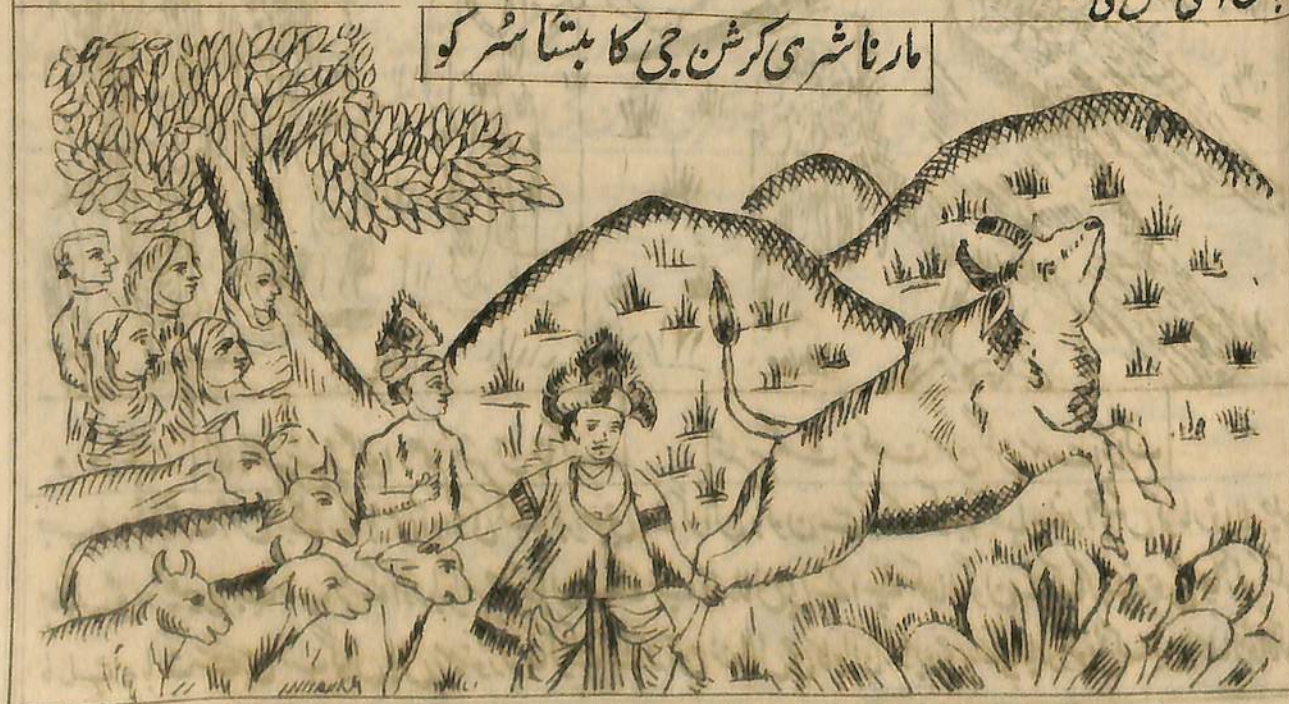 مارنا شری کرشن جی کا بتسا سُر کو